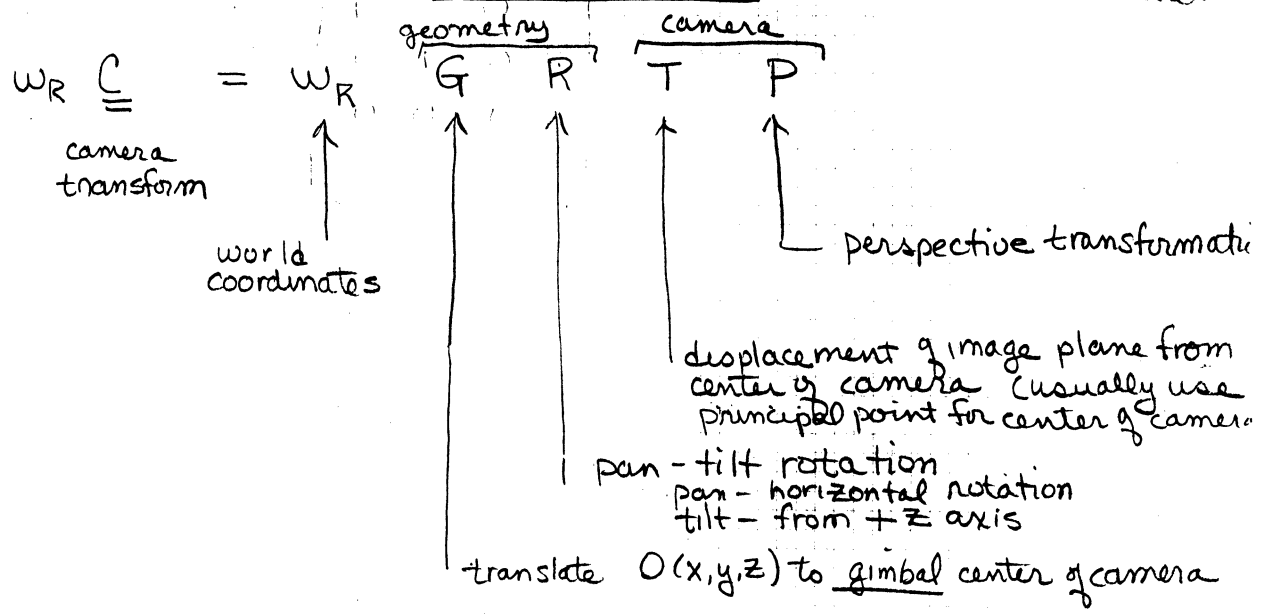 geometry camera
w_R C = w_R G R T P
camera
transform
world
coordinates
perspective
displacement of image plane from
center of camera (usually use
principal point for center of
pan - tilt rotation
pan - horizontal rotation
tilt - from + z axis
translate O(x,y,z) to gimbal center of camera